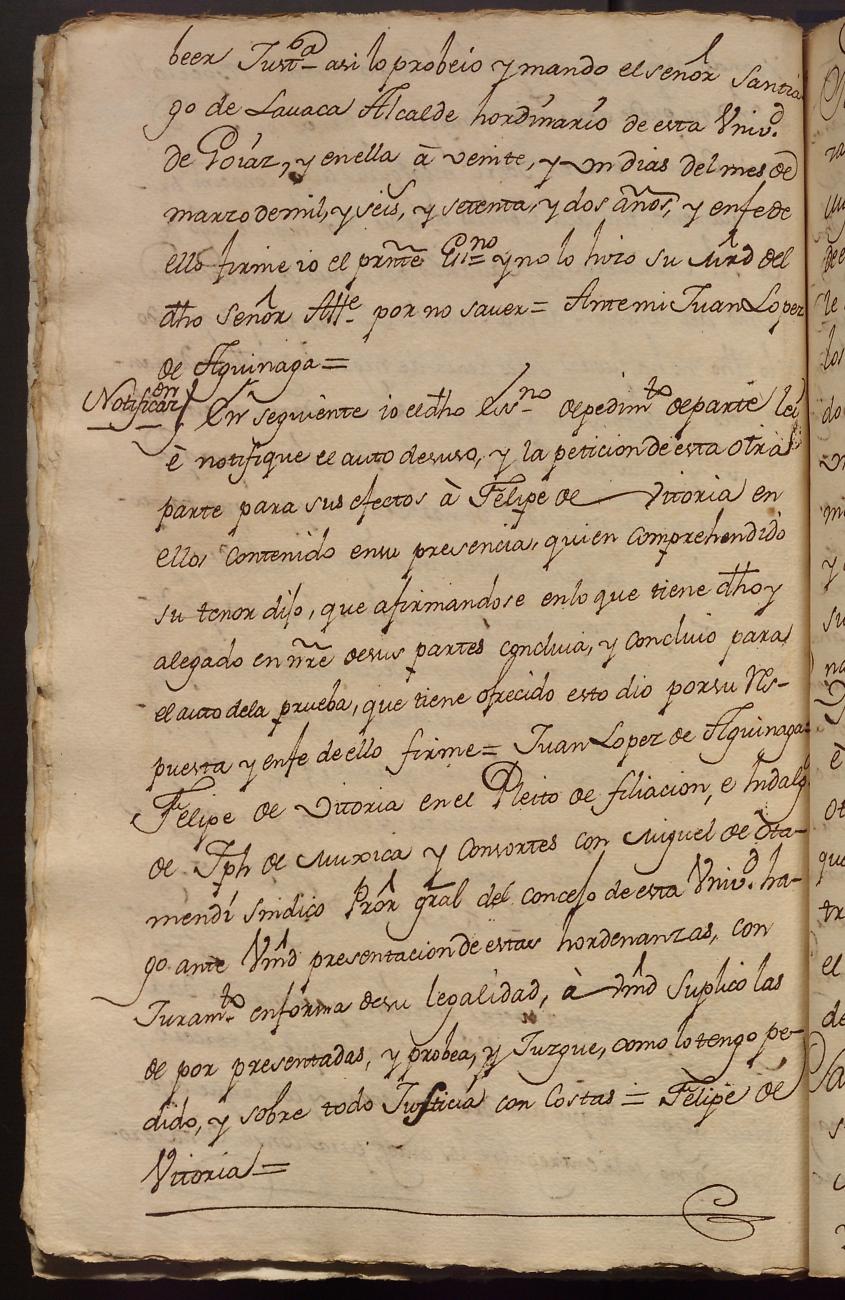 beer Justª asi lo probeio y mando el señor Santia
go de Lauaca Alcalde hordinario de esta Univ.d
de Goiaz, y en ella à veinte, y un dias del mes de
marzo de mil, y seis, y setenta, y dos años, y enfe de
ello firme io el prnte Esno y no lo hizo su Mrd del
dho Señor Alle por no sauer = Ante mi Juan Lopez
de Aguinaga =
Notificaz.on En seguiente io el dho Essno de pedimto de parte lei
è notifique el auto de suso, y la peticion de esta otra
parte para sus efectos à Felipe de Vitoria en
ellos contenido en su presencia, quien comprehendido
su tenor dijo, que afirmandose en lo que tiene dho y
alegado en nre de sus partes concluia, y concluio para
el auto de la prueba, que tiene ofrecido esto dio por su Res-
puesta y enfe de ello firme = Juan Lopez de Aguinaga =
Felipe de Vitoria en el Pleito de filiacion, e hidalga
de Jph de Muxica y Consortes con Miguel de Ota-
mendi sindico Pror gral del concejo de esta Univ.d ha-
go ante Vmd presentacion de estas hordenanzas, con
Juram.to en forma de su legalidad, à Vmd Suplico las
de por presentadas, y probea, y Juzgue, como lo tengo pe-
dido, y sobre todo Justicia con Costas = Felipe de
Vitoria =